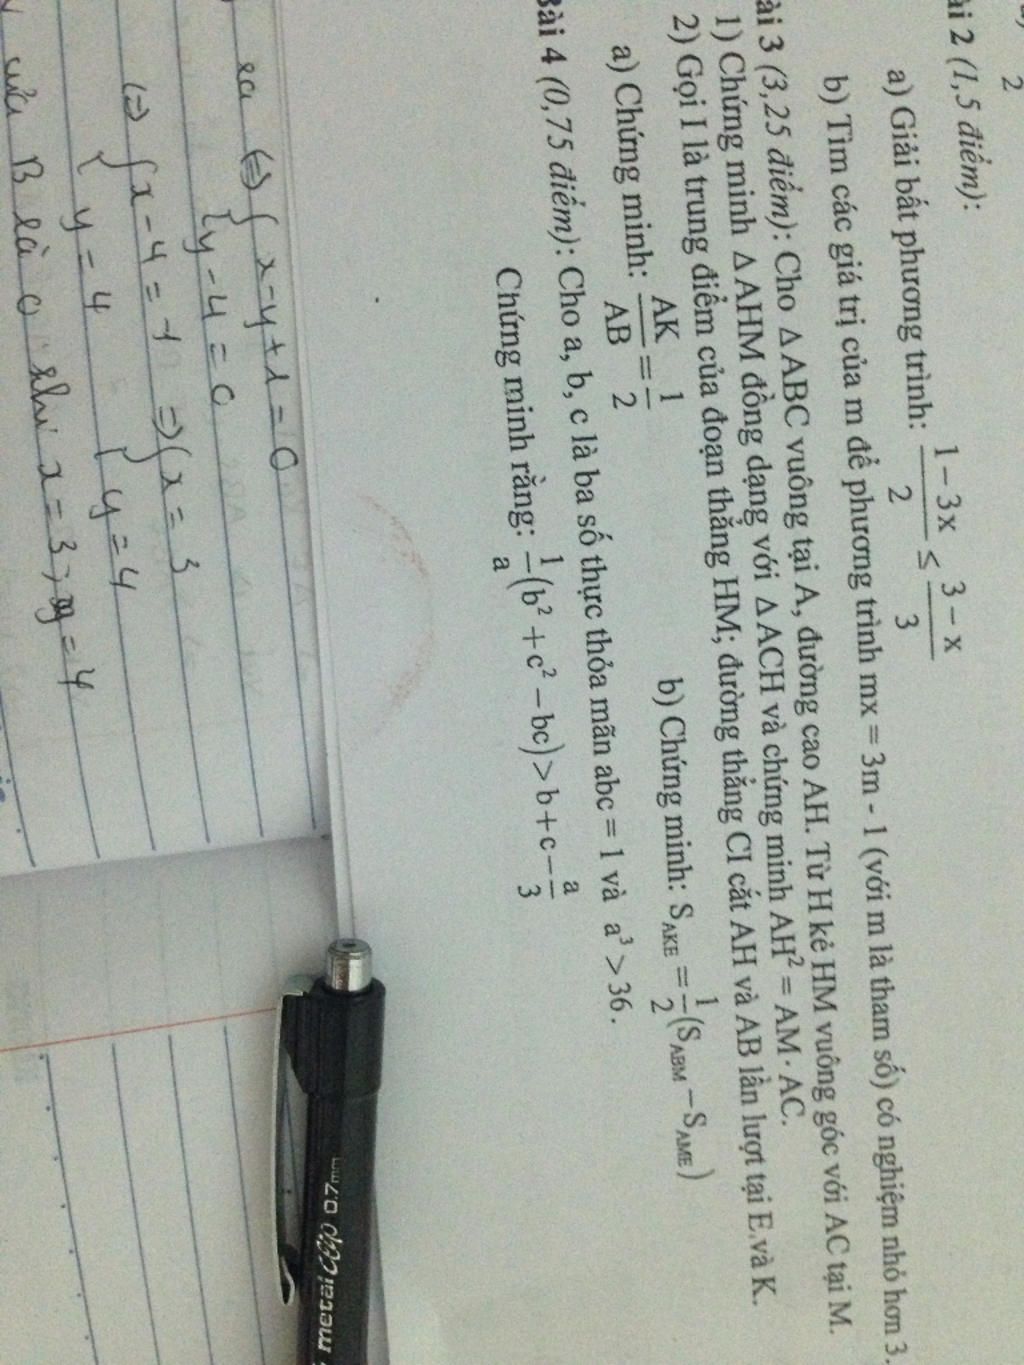 2
ài 2 (1,5 điểm):
a) Giải bất phương trình: (1 – 3x)/2 ≤ (3 – x)/3
b) Tìm các giá trị của m để phương trình mx = 3m - 1 (với m là tham số) có nghiệm nhỏ hơn 3.
ài 3 (3,25 điểm): Cho Δ ABC vuông tại A, đường cao AH. Từ H kẻ HM vuông góc với AC tại M.
1) Chứng minh Δ AHM đồng dạng với Δ ACH và chứng minh AH² = AM · AC.
2) Gọi I là trung điểm của đoạn thẳng HM; đường thẳng CI cắt AH và AB lần lượt tại E và K.
a) Chứng minh: AK/AB = 1/2 b) Chứng minh: S_AKE = 1/2 (S_ABM – S_AME)
Bài 4 (0,75 điểm): Cho a, b, c là ba số thực thỏa mãn abc = 1 và a³ > 36.
Chứng minh rằng: 1/a (b² + c² – bc) > b + c – a/3
(=) { x-y+1=0
y-4=0
(=) { x-4=-1 =) { x=3
y=4 y=4
B là 0 khi x=3; y=4
metal Clip 0.7mm